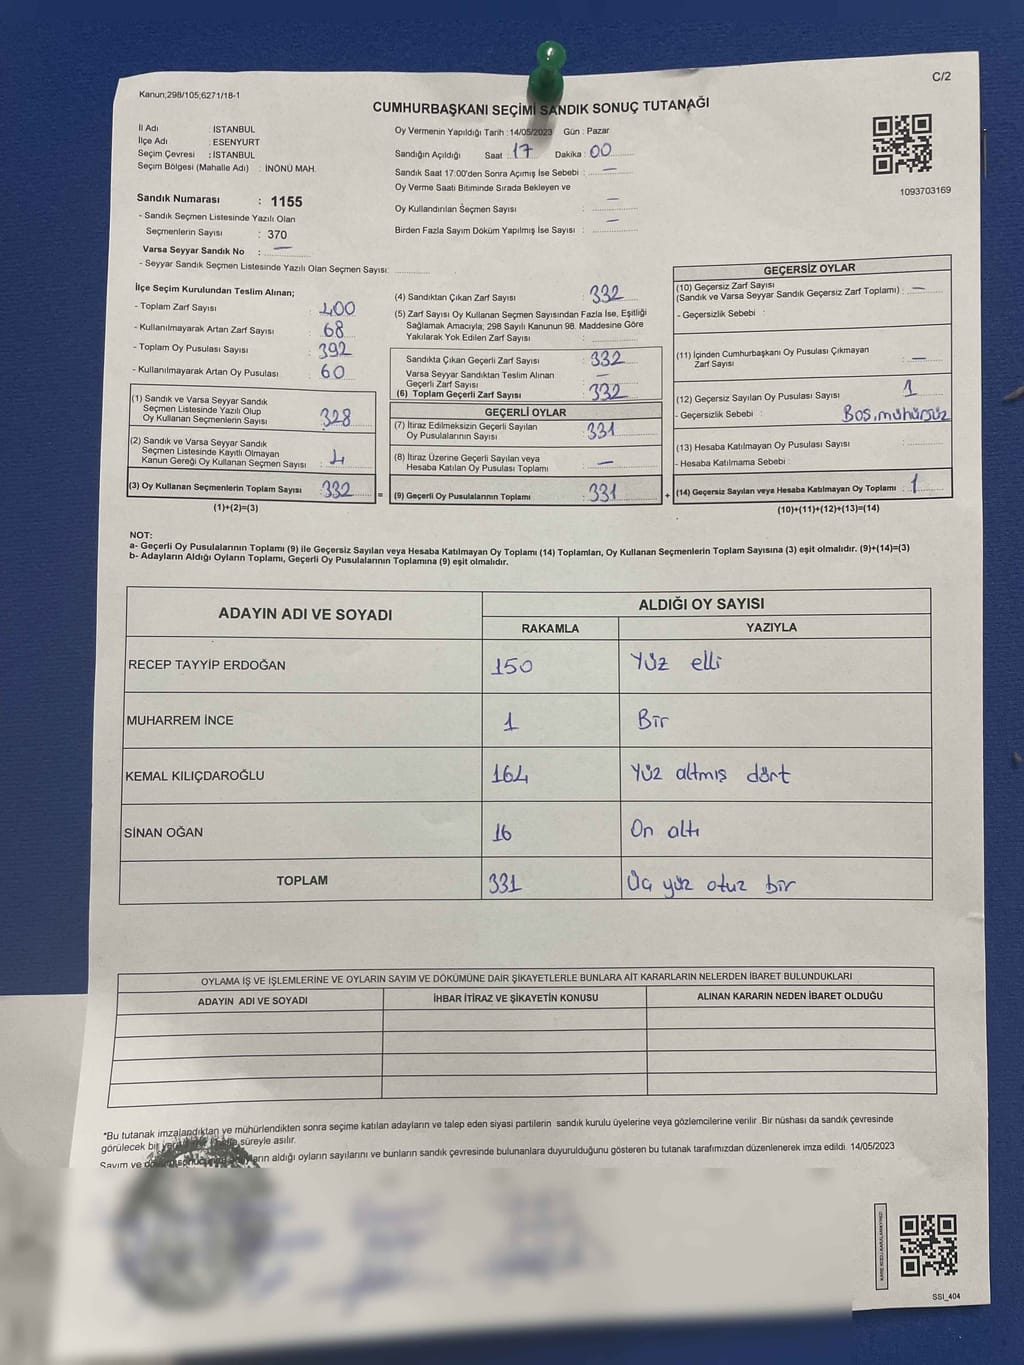 Kanun;298/105;6271/18-1
C/2
CUMHURBAŞKANI SEÇİMİ SANDIK SONUÇ TUTANAĞI
İl Adı : İSTANBUL
İlçe Adı : ESENYURT
Seçim Çevresi : İSTANBUL
Seçim Bölgesi (Mahalle Adı) : İNÖNÜ MAH.
Oy Vermenin Yapıldığı Tarih : 14/05/2023 Gün : Pazar
Sandığın Açıldığı Saat : 17 Dakika : 00
Sandık Saat 17:00'den Sonra Açımış İse Sebebi : —
Oy Verme Saati Bitiminde Sırada Bekleyen ve
Oy Kullandırılan Seçmen Sayısı : —
Birden Fazla Sayım Döküm Yapılmış İse Sayısı : —
1093703169
Sandık Numarası : 1155
- Sandık Seçmen Listesinde Yazılı Olan
Seçmenlerin Sayısı : 370
Varsa Seyyar Sandık No : —
- Seyyar Sandık Seçmen Listesinde Yazılı Olan Seçmen Sayısı:
İlçe Seçim Kurulundan Teslim Alınan;
- Toplam Zarf Sayısı : 400
- Kullanılmayarak Artan Zarf Sayısı : 68
- Toplam Oy Pusulası Sayısı : 392
- Kullanılmayarak Artan Oy Pusulası : 60
(1) Sandık ve Varsa Seyyar Sandık
Seçmen Listesinde Yazılı Olup
Oy Kullanan Seçmenlerin Sayısı : 328
(2) Sandık ve Varsa Seyyar Sandık
Seçmen Listesinde Kayıtlı Olmayan
Kanun Gereği Oy Kullanan Seçmen Sayısı : 4
(3) Oy Kullanan Seçmenlerin Toplam Sayısı : 332
(1)+(2)=(3)
(4) Sandıktan Çıkan Zarf Sayısı : 332
(5) Zarf Sayısı Oy Kullanan Seçmen Sayısından Fazla İse, Eşitliği
Sağlamak Amacıyla; 298 Sayılı Kanunun 98. Maddesine Göre
Yakılarak Yok Edilen Zarf Sayısı :
Sandıkta Çıkan Geçerli Zarf Sayısı : 332
Varsa Seyyar Sandıktan Teslim Alınan
Geçerli Zarf Sayısı : —
(6) Toplam Geçerli Zarf Sayısı : 332
GEÇERLİ OYLAR
(7) İtiraz Edilmeksizin Geçerli Sayılan
Oy Pusulalarının Sayısı : 331
(8) İtiraz Üzerine Geçerli Sayılan veya
Hesaba Katılan Oy Pusulası Toplamı : —
= (9) Geçerli Oy Pusulalarının Toplamı : 331
GEÇERSİZ OYLAR
(10) Geçersiz Zarf Sayısı
(Sandık ve Varsa Seyyar Sandık Geçersiz Zarf Toplamı) : —
- Geçersizlik Sebebi :
(11) İçinden Cumhurbaşkanı Oy Pusulası Çıkmayan
Zarf Sayısı : —
(12) Geçersiz Sayılan Oy Pusulası Sayısı : 1
- Geçersizlik Sebebi : Boş, mühürsüz
(13) Hesaba Katılmayan Oy Pusulası Sayısı :
- Hesaba Katılmama Sebebi :
+ (14) Geçersiz Sayılan veya Hesaba Katılmayan Oy Toplamı : 1
(10)+(11)+(12)+(13)=(14)
NOT:
a- Geçerli Oy Pusulalarının Toplamı (9) ile Geçersiz Sayılan veya Hesaba Katılmayan Oy Toplamı (14) Toplamları, Oy Kullanan Seçmenlerin Toplam Sayısına (3) eşit olmalıdır. (9)+(14)=(3)
b- Adayların Aldığı Oyların Toplamı, Geçerli Oy Pusulalarının Toplamına (9) eşit olmalıdır.
ADAYIN ADI VE SOYADI ALDIĞI OY SAYISI
RAKAMLA YAZIYLA
RECEP TAYYİP ERDOĞAN 150 Yüz elli
MUHARREM İNCE 1 Bir
KEMAL KILIÇDAROĞLU 164 Yüz altmış dört
SİNAN OĞAN 16 On altı
TOPLAM 331 Üç yüz otuz bir
OYLAMA İŞ VE İŞLEMLERİNE VE OYLARIN SAYIM VE DÖKÜMÜNE DAİR ŞİKAYETLERLE BUNLARA AİT KARARLARIN NELERDEN İBARET BULUNDUKLARI
ADAYIN ADI VE SOYADI İHBAR İTİRAZ VE ŞİKAYETİN KONUSU ALINAN KARARIN NEDEN İBARET OLDUĞU
*Bu tutanak imzalandıktan ve mühürlendikten sonra seçime katılan adayların ve talep eden siyasi partilerin sandık kurulu üyelerine veya gözlemcilerine verilir .Bir nüshası da sandık çevresinde
görülecek bir süreyle asılır.
Sayım ve aldığı oyların sayılarını ve bunların sandık çevresinde bulunanlara duyurulduğunu gösteren bu tutanak tarafımızdan düzenlenerek imza edildi. 14/05/2023
SSI_404